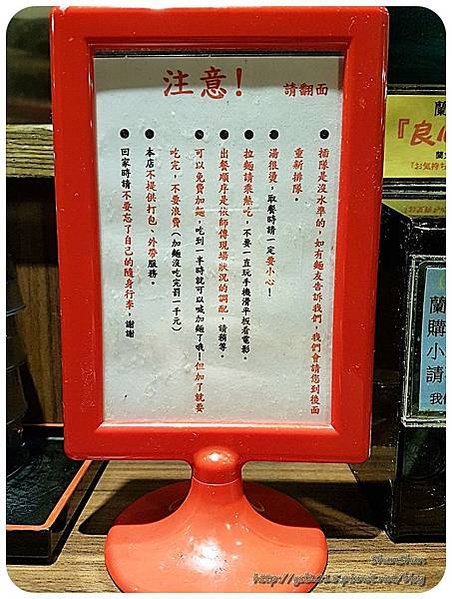 注意!
請翻面
● 插隊是沒水準的，如有麵友告訴我們，我們會請您到後面
重新排隊。
● 湯很燙，取餐時請一定要小心！
● 拉麵請乘熱吃，不要一直玩手機滑平板看電影。
● 出餐順序是依師傅現場狀況的調配，請稍等。
● 可以免費加麵，吃到一半時就可以喊加麵了哦！但加了就要
吃完，不要浪費（加麵沒吃完罰一千元）
● 本店不提供打包、外帶服務。
● 回家時請不要忘了自己的隨身行李，謝謝
蘭
『良心
蘭
購
小
請
我
ShunShun